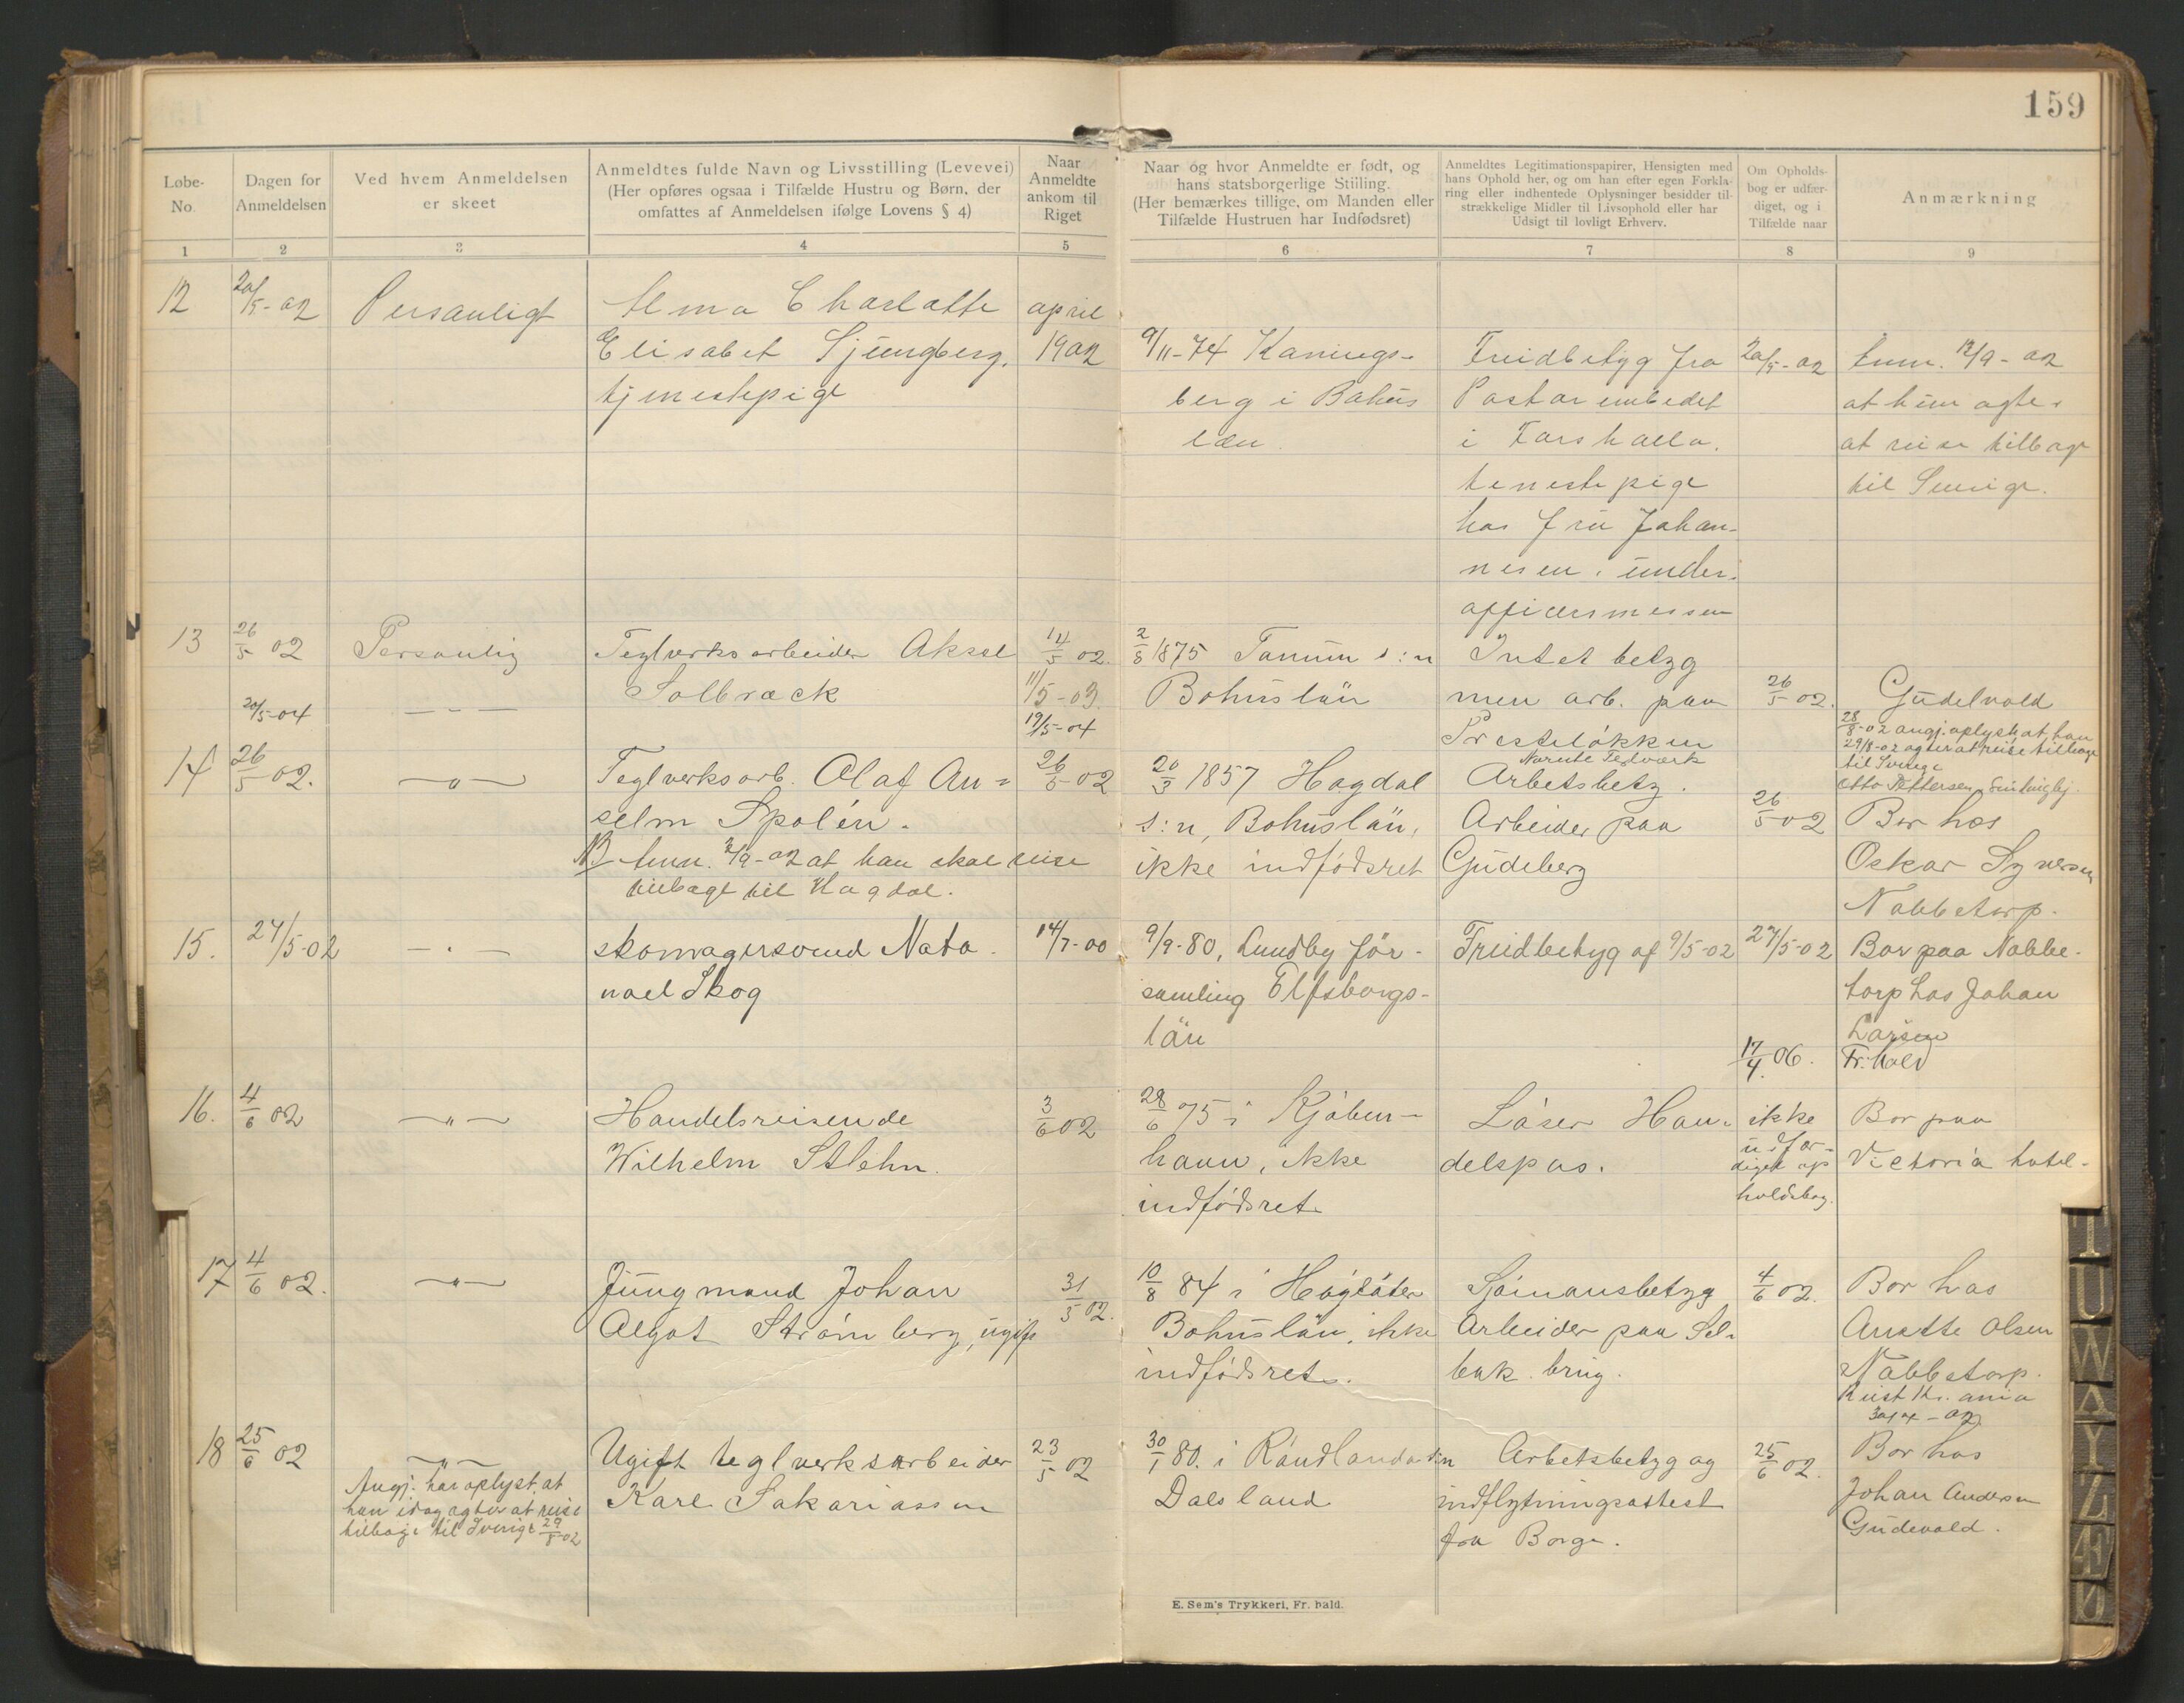 159
Løbe-
No.
Dagen for
Anmeldelsen
Ved hvem Anmeldelsen
er skeet
Anmeldtes fulde Navn og Livsstilling (Levevei)
(Her opføres ogsaa i Tilfælde Hustru og Børn, der
omfattes af Anmeldelsen ifølge Lovens § 4)
Naar
Anmeldte
ankom til
Riget
Naar og hvor Anmeldte er født, og
hans statsborgerlige Stiiling.
(Her bemærkes tillige, om Manden eller
Tilfælde Hustruen har Indfødsret)
Anmeldtes Legitimationspapirer, Hensigten med
hans Ophold her, og om han efter egen Forkla-
ring eller indhentede Oplysninger besidder til-
strækkelige Midler til Livsophold eller har
Udsigt til lovligt Erhverv.
Om Opholds-
bog er udfær-
diget, og i
Tilfælde naar
Anmærkning
1 2 3 4 5 6 7 8 9
12
20/5-02
Personligt
Alma Charlotte
Elisabet Ljungberg.
tjenestepige
april
1902
9/11-74 Konings-
berg i Bohus
len.
Freidbetyg fra
Pastorembedet
i Forshaella.
tenestepige
hos fru Johan-
nesen i under-
officersmessen
20/5-02
Anm. 12/9-02
at hun agter
at reise tilbage
til Sverige.
13
26/5 02
Personlig
Teglverksarbeider Aksel
Solbrack
14/5 02.
2/8 1875 Tanum s:n
Bohuslän
Intet betyg
men arb. paa
Presteløkken
26/5 02.
Gudelvold
20/5-04
11/5-03.
19/5-04
28/8-02 angj. oplyst at han
29/8-02 agter at reise tilbage
til Sverige
14
26/5 02.
Teglverksarb. Olaf An=
selm Spolén.
NB Anm. 2/9-02 at han skal reise
tilbage til Hogdal.
26/5 02
20/3 1857 Hogdal
s:n, Bohuslän,
ikke indfødsret
Arbetsbetg.
Arbeider paa
Gudeberg
26/5 02
Otto Pettersen
Bor hos
Oskar Syversen
Nabbetorp.
15.
27/5-02
skomagersvend Nata-
nael Skog
14/7-00
9/9-80, Lundby för-
samling Elfsborgs-
län
Freidbetyg af 9/5-02
27/5-02
Bor paa Nabbe-
torp hos Johan
Larsen
17/4 06.
Fr.hald
16.
4/6 02
Handelsreisende
Wilhelm Stlehn.
3/6 02
28/6 75 i Kjøben-
havn, ikke
indfødsret
Løser Han-
delspas.
ikke
udfær-
diget op
holdsbog.
Bor paa
Victoria hotel-
17
4/6 02.
Jungmand Johan
Algot Strømberg, ugift
31/5 02.
10/8 84 i Høgläter
Bohuslän, ikke
indfødsret.
Sjömansbetyg
Arbeider paa Sel-
bak brug.
4/6 02.
Bor hos
Anette Olsen
Nabbetorp.
Reist Kr.ania
18
25/6 02
Angj. har oplyst, at
han idag agter at reise
tilbage til Sverige 29/8-02
Ugift teglverksarbeider
Karl Sakariassen
23/5 02
30/1 80. i Råndlanda s:n
Dalsland
Arbetsbetyg og
indflytningsattest
fra Borge.
25/6 02.
Bor hos
Johan Andersen
Gudevold.
E. Sem's Trykkeri, Fr. hald.
T
U
W
Y
Z
Æ
Ø